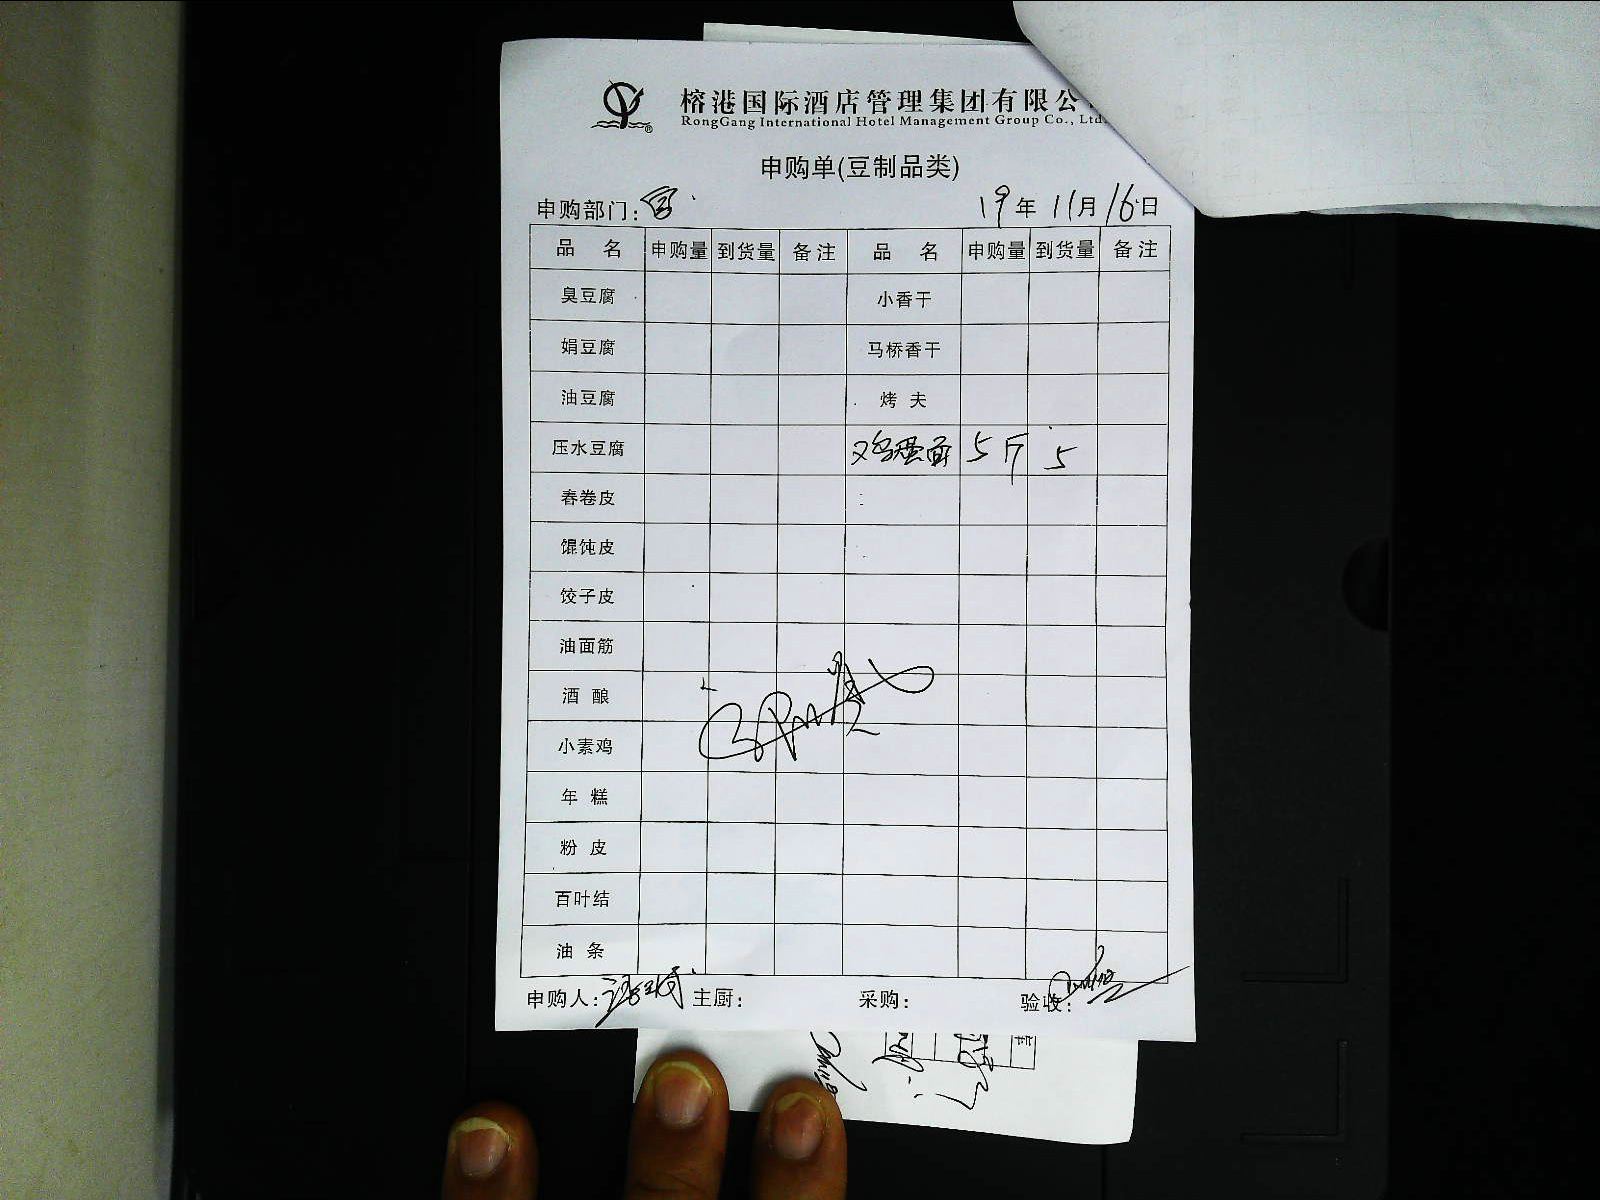 榕港国际酒店管理集团有限公
RongGang International Hotel Management Group Co., Ltd
申购单(豆制品类)
申购部门: 19年11月16日
品 名 申购量 到货量 备注 品 名 申购量 到货量 备注
臭豆腐 小香干
娟豆腐 马桥香干
油豆腐 烤 夫
压水豆腐 鸡蛋面 5斤 5
春卷皮
馄饨皮
饺子皮
油面筋
酒 酿
小素鸡
年 糕
粉 皮
百叶结
油 条
申购人: 主厨: 采购: 验收: